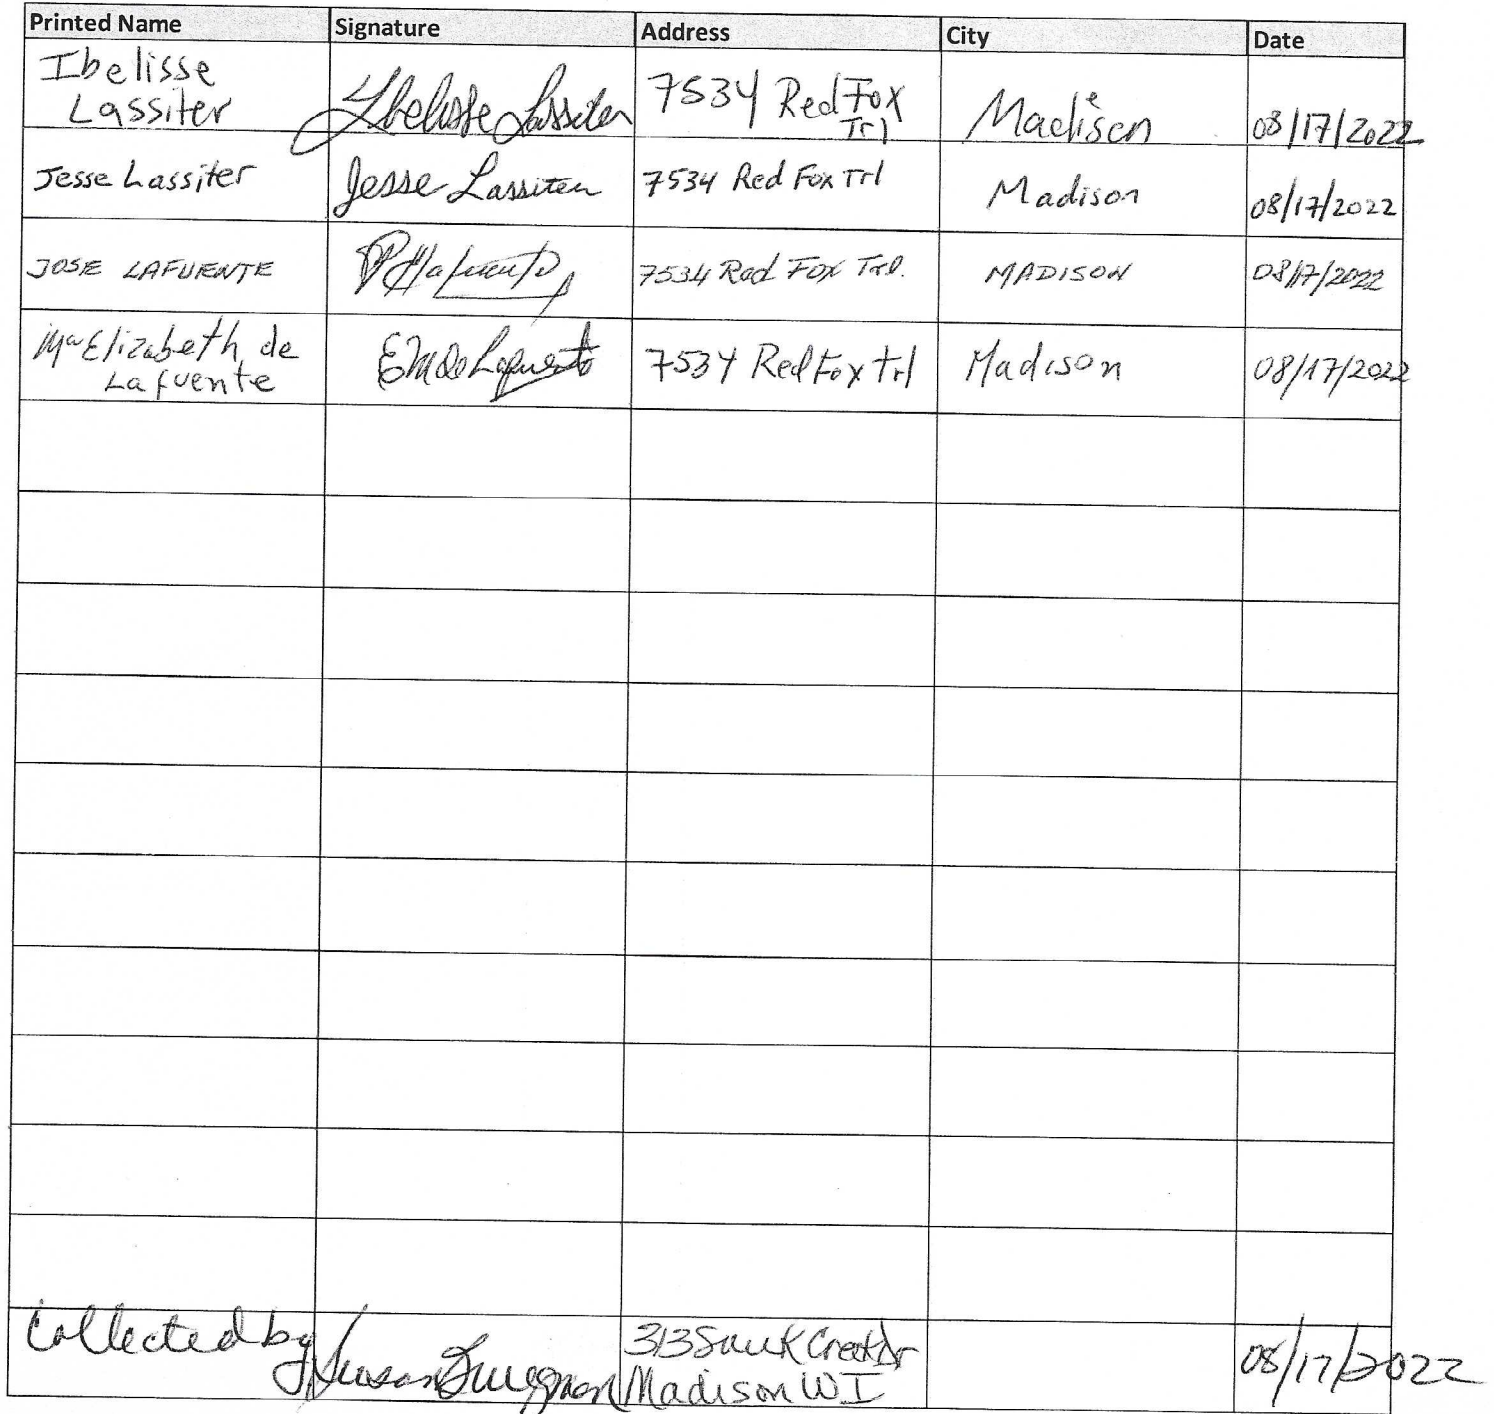 Printed Name Signature Address City Date
Ibelisse
Lassiter Ibelisse Lassiter 7534 Red Fox
Trl Madison 08/17/2022
Jesse Lassiter Jesse Lassiter 7534 Red Fox Trl Madison 08/17/2022
JOSE LAFUENTE Lafuente 7534 Red Fox Trl. MADISON 08/17/2022
Ma Elizabeth de
Lafuente EM de Lafuente 7534 Red Fox trl Madison 08/17/2022
Collected by Susan 313 Sauk Creek Dr
Madison WI 08/17/2022